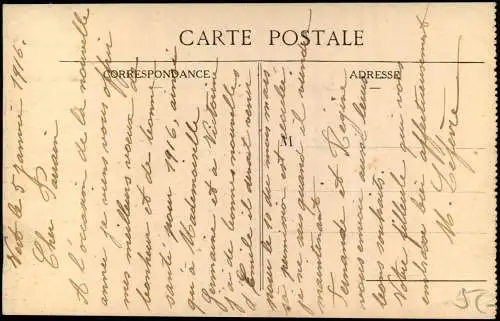 CARTE POSTALE
CORRESPONDANCE
ADRESSE
M
le 5 Janvier 1916.
Cher Parrain
A l'occasion de la nouvelle
année je viens vous offrir
mes meilleurs vœux de
bonheur et de bonne
santé pour 1916, ainsi
qu'à Mademoiselle
Germaine et à Victorine
J'ai de bonnes nouvelles
d'Emile il devait venir
pour le 10 du mois mais
sa permission est reculée
je ne sais quand il viendra
maintenant
Fernande et Régina
vous envoie aussi leurs
bons souhaits.
Votre filleule qui vous
embrasse bien affectueusement
M. Lefèvre